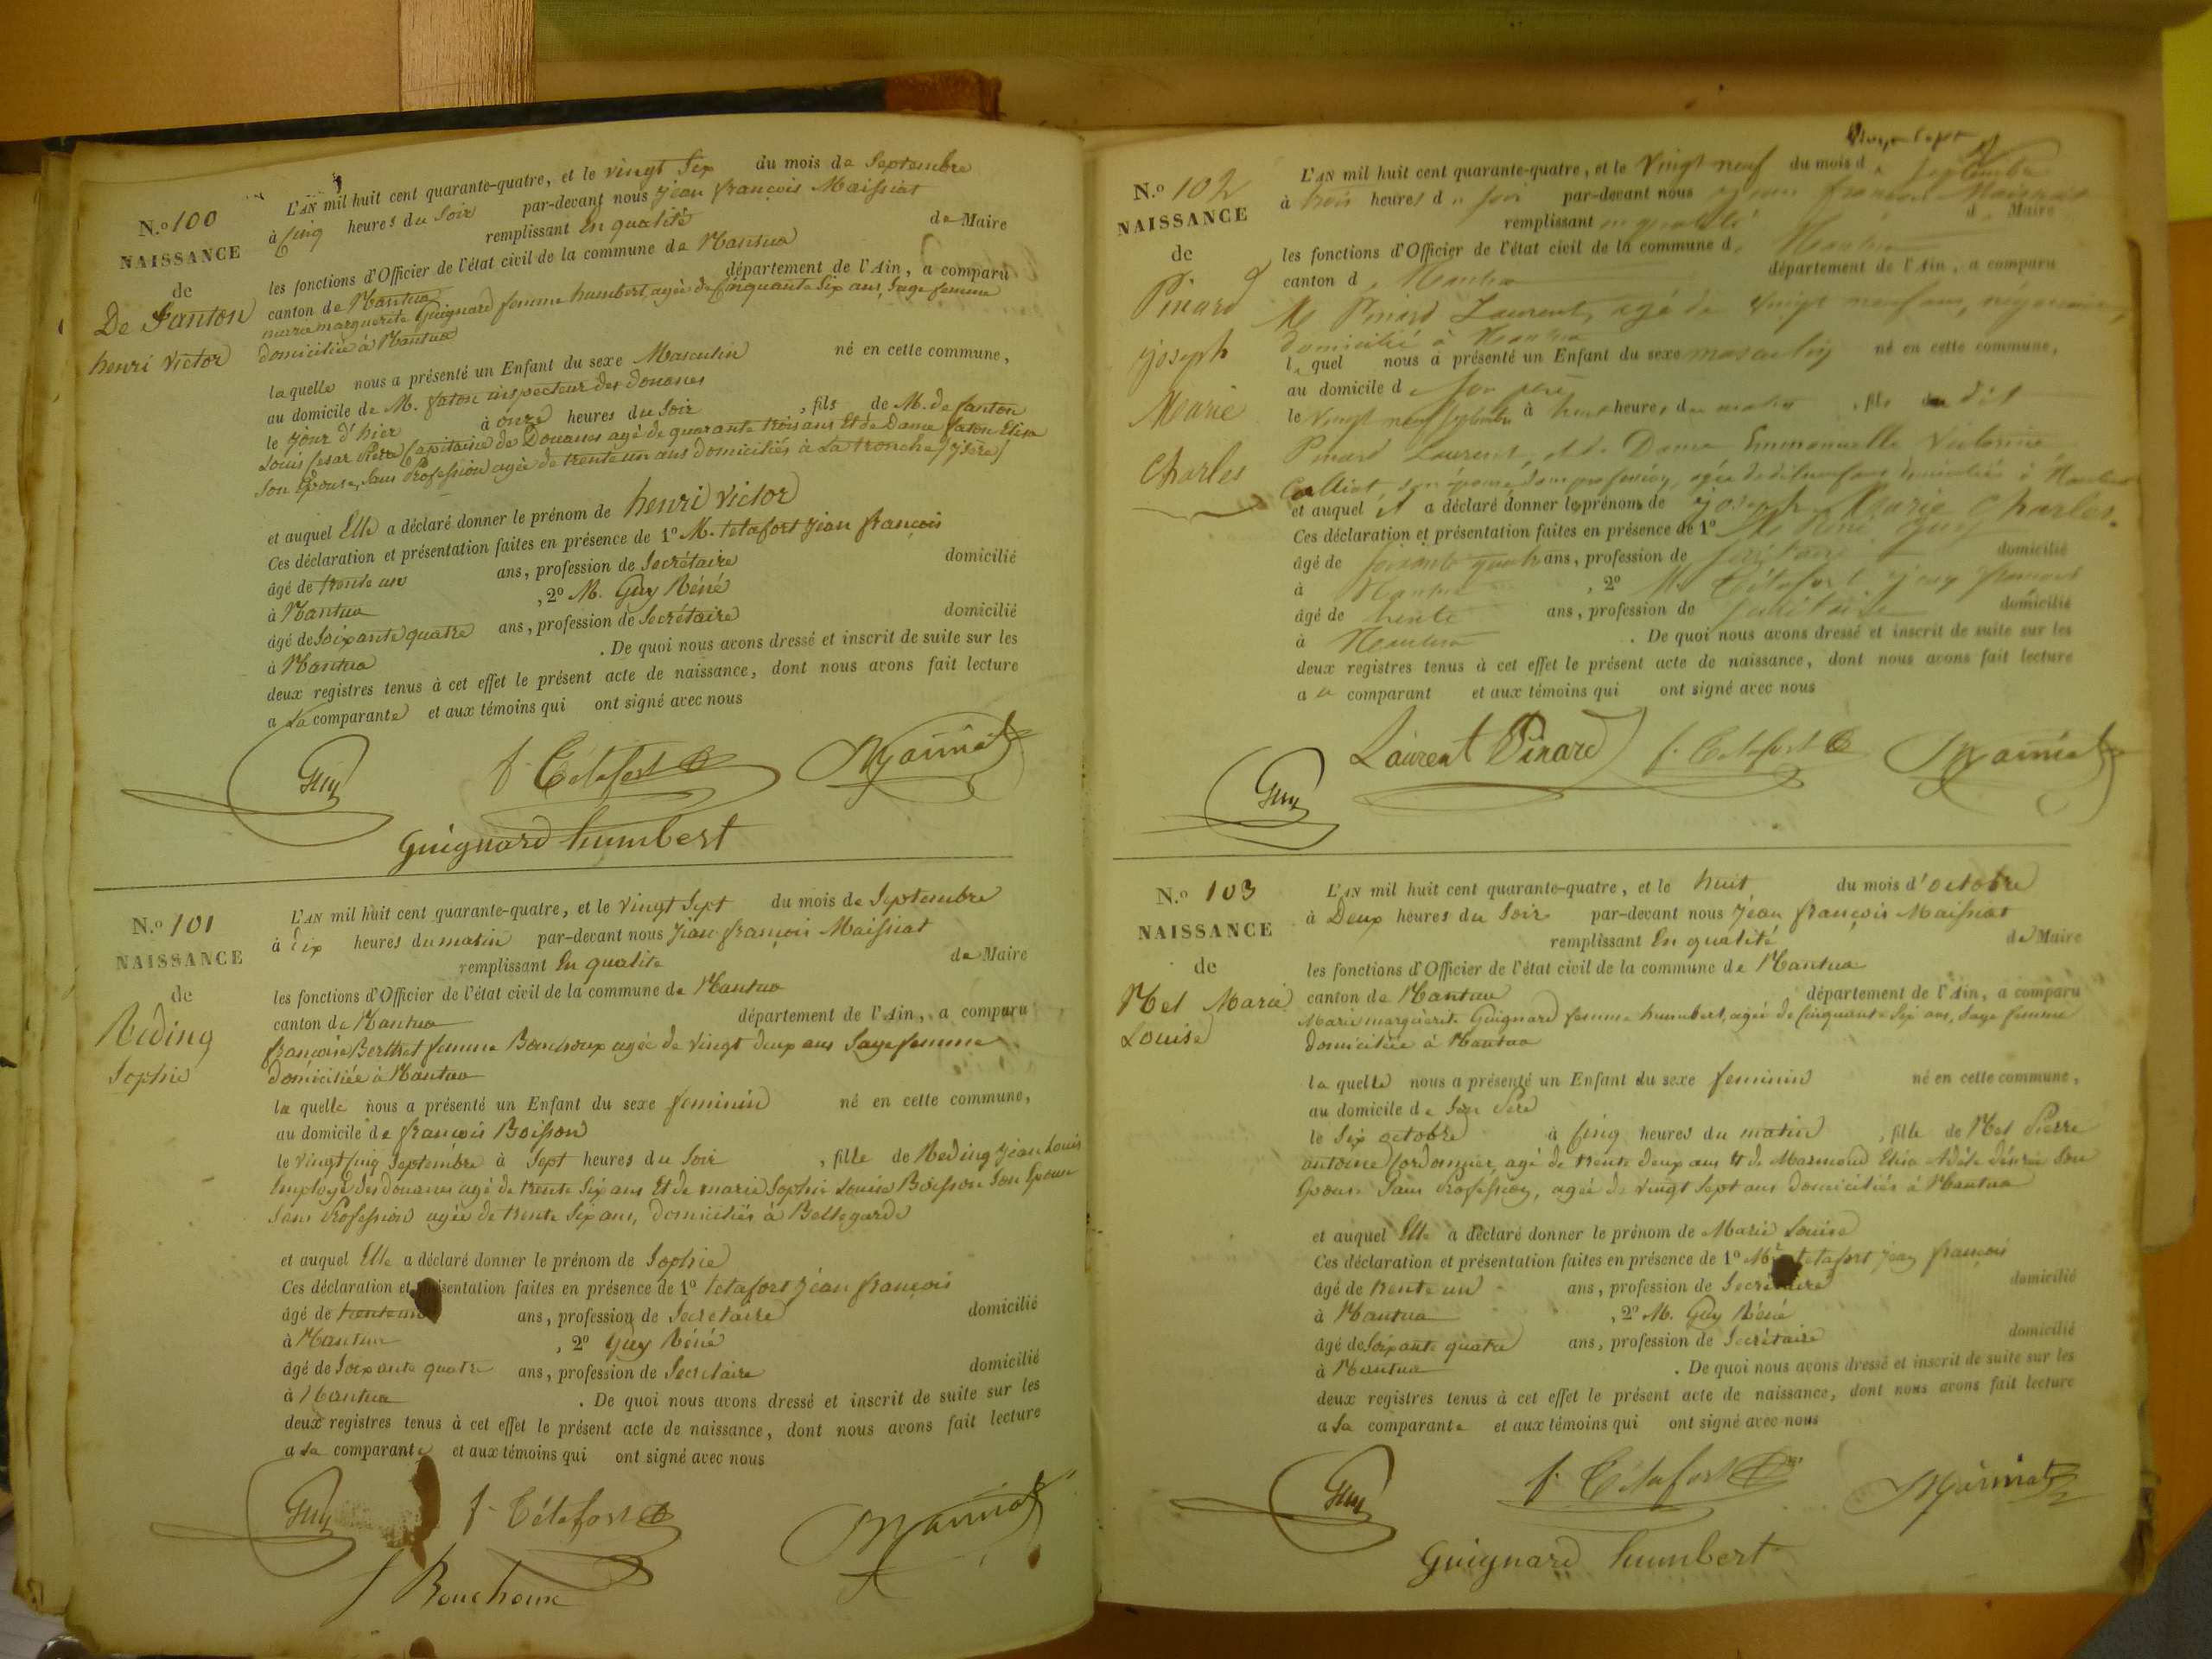 N.º 100
NAISSANCE
de
De Fanton
henri victor
L'AN mil huit cent quarante-quatre, et le vingt Six du mois de Septembre
à Cinq heures du Soir par-devant nous Jean françois Maissiat
remplissant En qualité de Maire
les fonctions d'Officier de l'état civil de la commune de Nantua
canton de Nantua département de l'Ain, a comparu
marie marguerite Guignard femme humbert, agée de Cinquante Six ans, Sage femme
domiciliée à Nantua
laquelle nous a présenté un Enfant du sexe Masculin né en cette commune,
au domicile de M. faton inspecteur des douanes
le jour d'hier à onze heures du Soir , fils de M. de fanton
Louis Cesar Pierre Capitaine de Douanes agé de quarante trois ans Et de Dame faton Elisa
Son Epouse, Sans Profession agée de trente un ans domiciliés à La tronche (Isère)
et auquel Elle a déclaré donner le prénom de henri victor
Ces déclaration et présentation faites en présence de 1º M. tetafort Jean françois
âgé de trente un ans, profession de Secrétaire domicilié
à Nantua , 2º M. Guy Réné
âgé de Soixante quatre ans, profession de Secrétaire domicilié
à Nantua . De quoi nous avons dressé et inscrit de suite sur les
deux registres tenus à cet effet le présent acte de naissance, dont nous avons fait lecture
a La comparante et aux témoins qui ont signé avec nous
Guy f. Tétafort Maissiat
Guignard humbert
N.º 101
NAISSANCE
de
Reding
Sophie
L'AN mil huit cent quarante-quatre, et le vingt Sept du mois de Septembre
à Dix heures du matin par-devant nous Jean françois Maissiat
remplissant En qualité de Maire
les fonctions d'Officier de l'état civil de la commune de Nantua
canton de Nantua département de l'Ain, a comparu
françoise Berthet femme Bouchoux agée de vingt deux ans Sage femme
domiciliée à Nantua
la quelle nous a présenté un Enfant du sexe feminin né en cette commune,
au domicile de françois Boisson
le vingt Cinq Septembre à Sept heures du Soir , fille de Reding Jean Louis
Employé des douanes agé de trente Six ans Et de marie Sophie Louise Boisson Son Epouse
Sans Profession agée de trente Six ans, domiciliés à Bellegarde
et auquel Elle a déclaré donner le prénom de Sophie
Ces déclaration et présentation faites en présence de 1º tetafort Jean françois
âgé de trente un ans, profession de Secretaire domicilié
à Nantua , 2º Guy Réné
âgé de Soixante quatre ans, profession de Secretaire domicilié
à Nantua . De quoi nous avons dressé et inscrit de suite sur les
deux registres tenus à cet effet le présent acte de naissance, dont nous avons fait lecture
a La comparante et aux témoins qui ont signé avec nous
Guy f. Tétafort Maissiat
f Bouchoux
N.º 102
NAISSANCE
de
Pinard
joseph
Marie
Charles
vingt sept
L'AN mil huit cent quarante-quatre, et le vingt neuf du mois de Septembre
à trois heures du soir par-devant nous Jean francois Maissiat
remplissant en qualité de Maire
les fonctions d'Officier de l'état civil de la commune de Nantua
canton de Nantua département de l'Ain, a comparu
M. Pinard Laurent, agé de vingt neuf ans, négociant,
domicilié à Nantua
lequel nous a présenté un Enfant du sexe masculin né en cette commune,
au domicile de son père
le vingt neuf septembre à heures du matin , fils du dit
Pinard Laurent, et de Dame Emmanuelle Victorine
Calliat, son épouse, sans profession, agée de ans domiciliée à Nantua
et auquel il a déclaré donner le prénom de joseph Marie Charles.
Ces déclaration et présentation faites en présence de 1º M. René Guy
âgé de soixante quatre ans, profession de secrétaire domicilié
à Nantua , 2º M. Tétafort jean françois
âgé de trente ans, profession de secrétaire domicilié
à Nantua . De quoi nous avons dressé et inscrit de suite sur les
deux registres tenus à cet effet le présent acte de naissance, dont nous avons fait lecture
au comparant et aux témoins qui ont signé avec nous
Laurent Pinard f. Tétafort Maissiat
Guy
N.º 103
NAISSANCE
de
Met Marie
Louise
L'AN mil huit cent quarante-quatre, et le huit du mois d'octobre
à Deux heures du Soir par-devant nous Jean françois Maissiat
remplissant En qualité de Maire
les fonctions d'Officier de l'état civil de la commune de Nantua
canton de Nantua département de l'Ain, a comparu
Marie marguerite Guignard femme humbert, agée de Cinquante Six ans, Sage femme
domiciliée à Nantua
la quelle nous a présenté un Enfant du sexe feminin né en cette commune,
au domicile de Son Père
le Six octobre à Cinq heures du matin , fille de Met Pierre
antoine Cordonnier, agé de trente deux ans Et de Marmond Elisa Adèle Désirée Son
Epouse Sans Profession, agée de vingt Sept ans domiciliés à Nantua
et auquel Elle a déclaré donner le prénom de Marie Louise
Ces déclaration et présentation faites en présence de 1º Mr tetafort Jean françois
âgé de trente un ans, profession de Secrétaire domicilié
à Nantua , 2º M. Guy Réné
âgé de Soixante quatre ans, profession de Secrétaire domicilié
à Nantua . De quoi nous avons dressé et inscrit de suite sur les
deux registres tenus à cet effet le présent acte de naissance, dont nous avons fait lecture
a La comparante et aux témoins qui ont signé avec nous
Guy f. Tétafort Maissiat
Guignard humbert